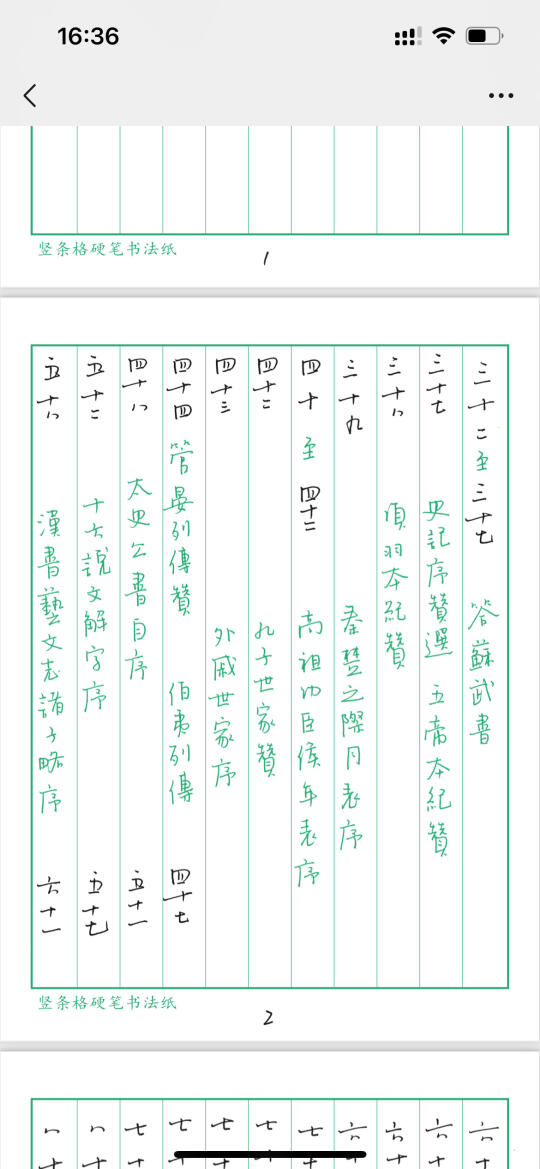 16:36
竖条格硬笔书法纸
1
三十二至三十七 答蘇武書
三十七 史記序贊選 五帝本紀贊
三十八 項羽本紀贊
三十九 秦楚之際月表序
四十 至 四十二 高祖功臣侯年表序
四十二 孔子世家贊
四十三 外戚世家序
四十四 管晏列傳贊 伯夷列傳 四十七
四十八 太史公書自序 五十一
五十二 十六說文解字序 五十七
五十八 漢書藝文志諸子略序 六十一
竖条格硬笔书法纸
2